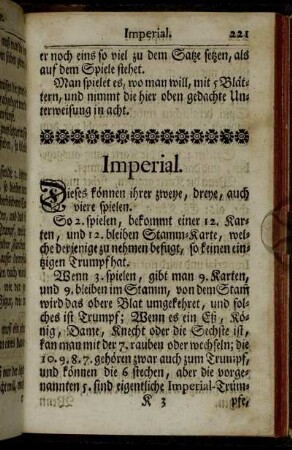 Imperial. 221
er noch eins so viel zu dem Satze setzen, als
auf dem Spiele stehet.
Man spielet es, wo man will, mit 5 Blät-
tern, und nimmt die hier oben gedachte Un-
terweisung in acht.
Imperial.
Dieses können ihrer zweye, dreye, auch
viere spielen.
So 2. spielen, bekommt einer 12. Kar-
ten, und 12. bleiben Stamm-Karte, wel-
che derjenige zu nehmen befugt, so keinen ein-
tzigen Trumpf hat.
Wenn 3. spielen, gibt man 9. Karten,
und 9. bleiben im Stamm, von dem Stam̃
wird das obere Blat umgekehret, und sol-
ches ist Trumpf; Wenn es ein Eß, Kö-
nig, Dame, Knecht oder die Sechste ist,
kan man mit der 7. rauben oder wechseln; die
10. 9. 8. 7. gehören zwar auch zum Trumpf,
und können die 6 stechen, aber die vorge-
nannten 5. sind eigentliche Imperial-Trüm-
K 3 pfe,